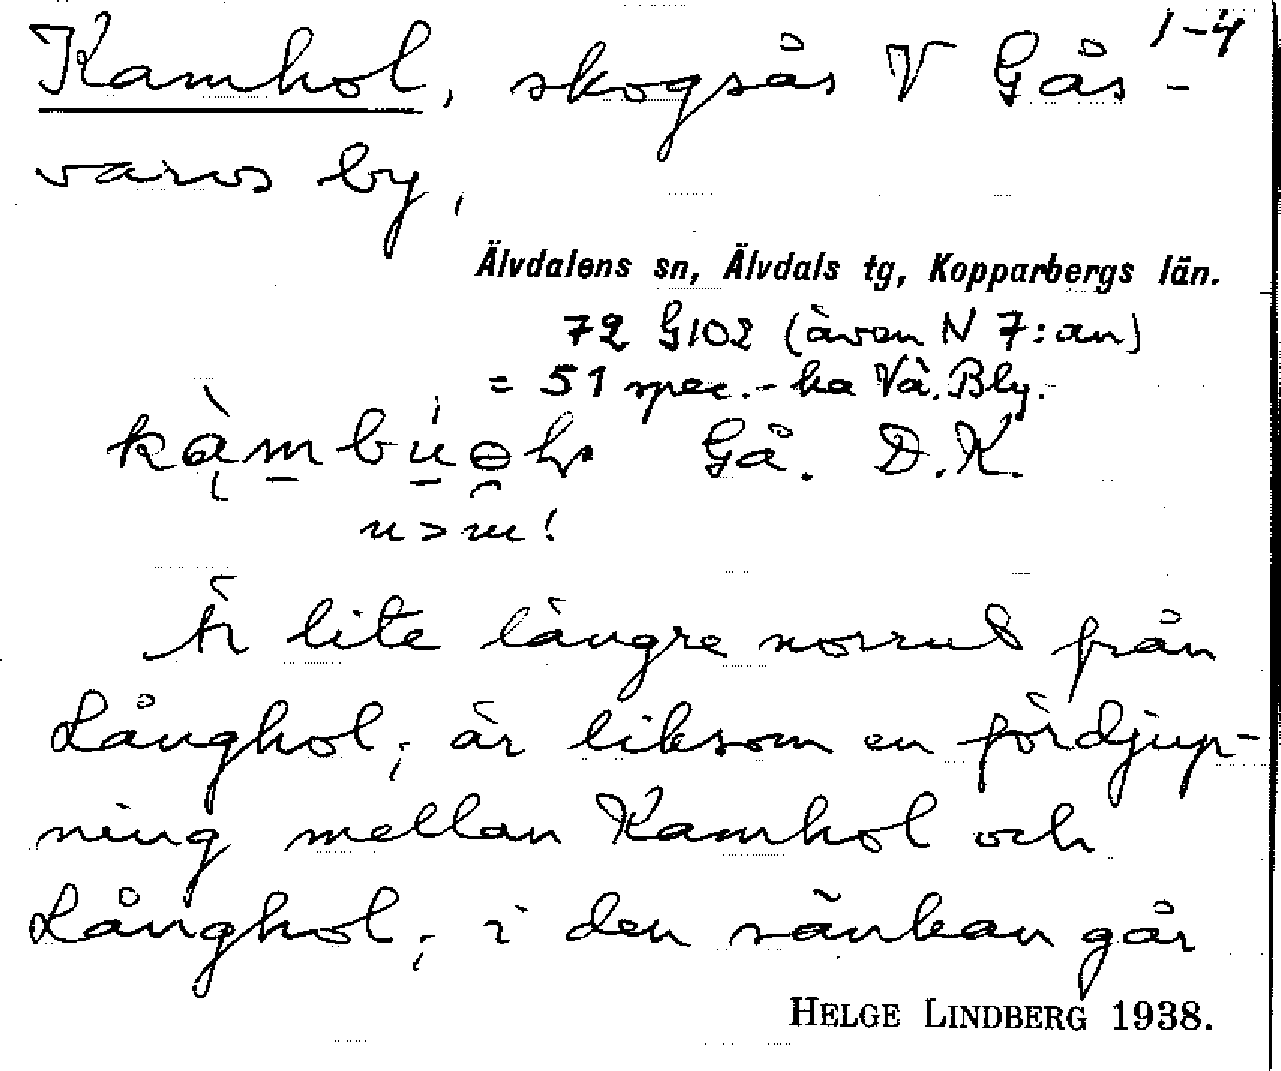 1-4
Kamhol, skogsås V Gås-
varvs by,
Älvdalens sn, Älvdals tg, Kopparbergs län.
72 G102 (även N 7:an)
= 51 spec.-ka Vä. Bly.
Gå. D.K.
n>m!
Är lite längre norrut från
Långhol, är liksom en fördjup-
ning mellan Kamhol och
Långhol, i den sänkan går
HELGE LINDBERG 1938.